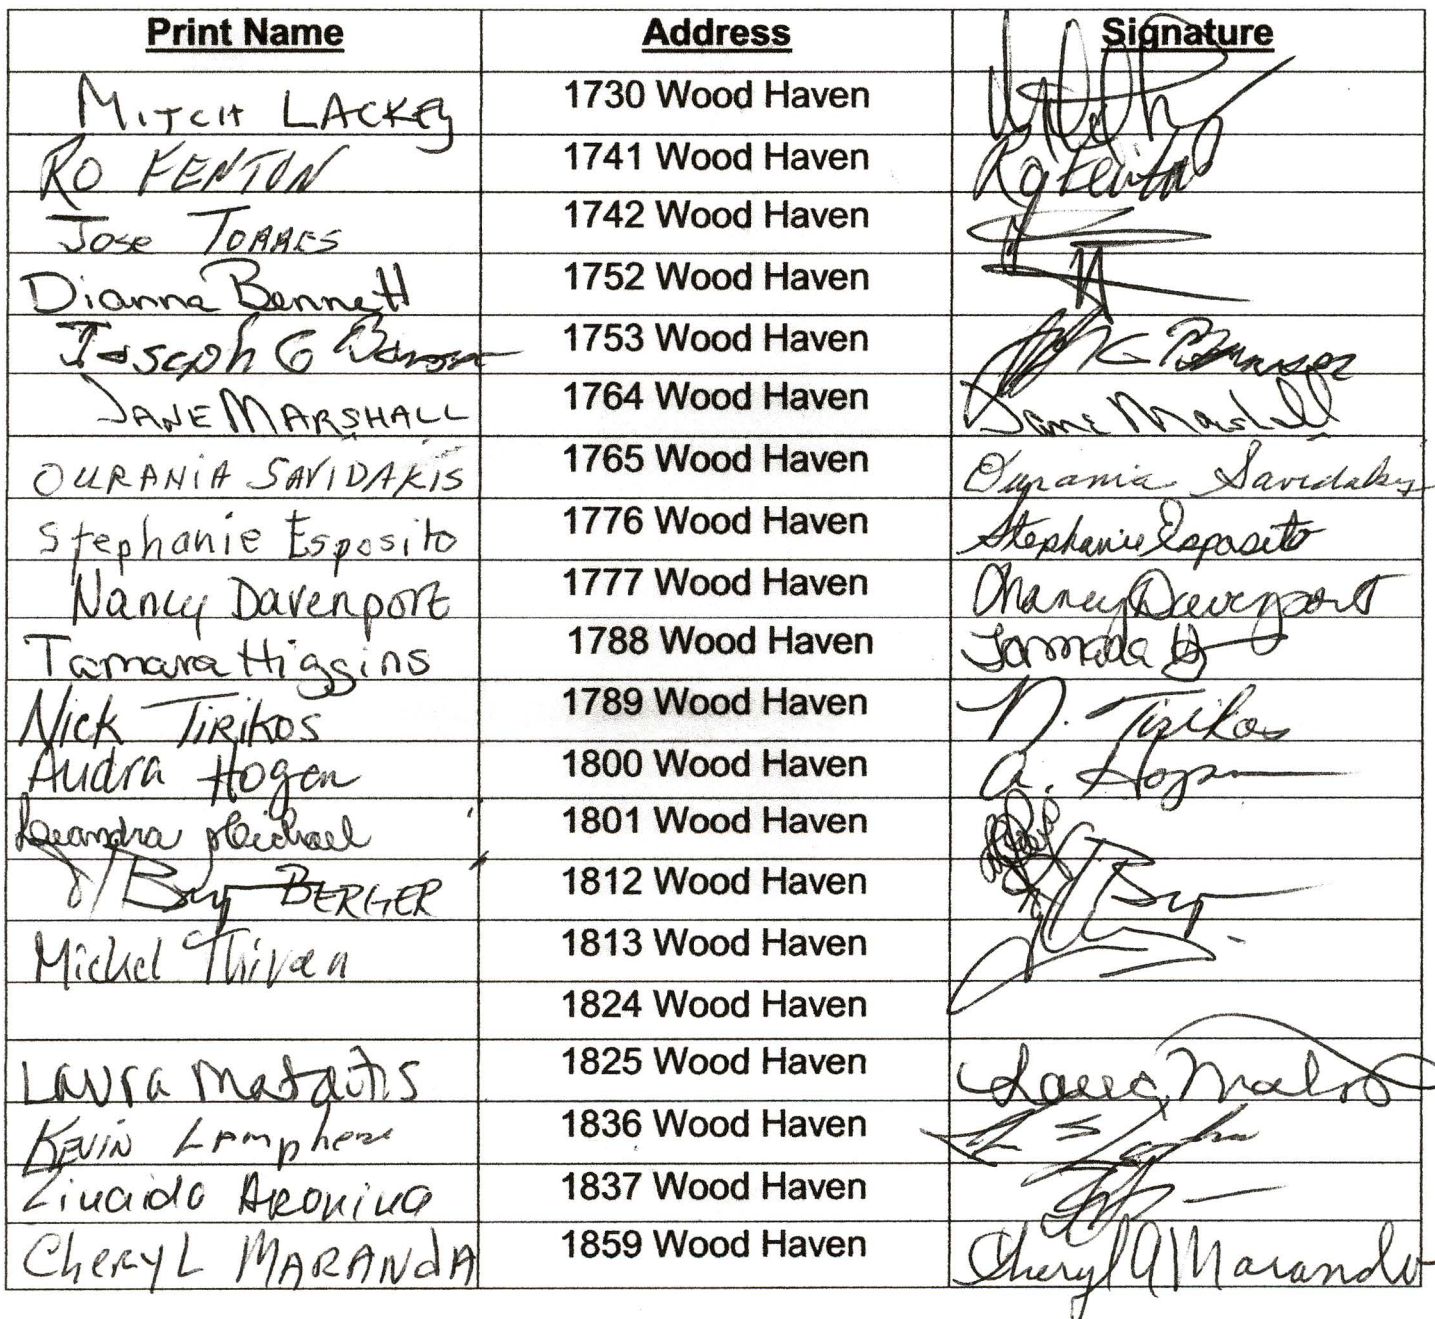 Print Name Address Signature
MITCH LACKEY 1730 Wood Haven
RO FENTON 1741 Wood Haven Ro Fenton
Jose TORRES 1742 Wood Haven
Dianna Bennett 1752 Wood Haven
Joseph G 1753 Wood Haven G
JANE MARSHALL 1764 Wood Haven Jane Marshall
OURANIA SAVIDAKIS 1765 Wood Haven Ourania Savidakis
Stephanie Esposito 1776 Wood Haven Stephanie Esposito
Nancy Davenport 1777 Wood Haven Nancy Davenport
Tamara Higgins 1788 Wood Haven Tamara H
Nick TIRIKOS 1789 Wood Haven N. Tirikos
Audra Hogan 1800 Wood Haven A. Hogan
Deandra Michael 1801 Wood Haven
BERGER 1812 Wood Haven
Michel 1813 Wood Haven
1824 Wood Haven
Laura 1825 Wood Haven Laura
KEVIN Lamphere 1836 Wood Haven
Zinaida ARONINA 1837 Wood Haven
CheryL MARANdA 1859 Wood Haven Cheryl A Maranda